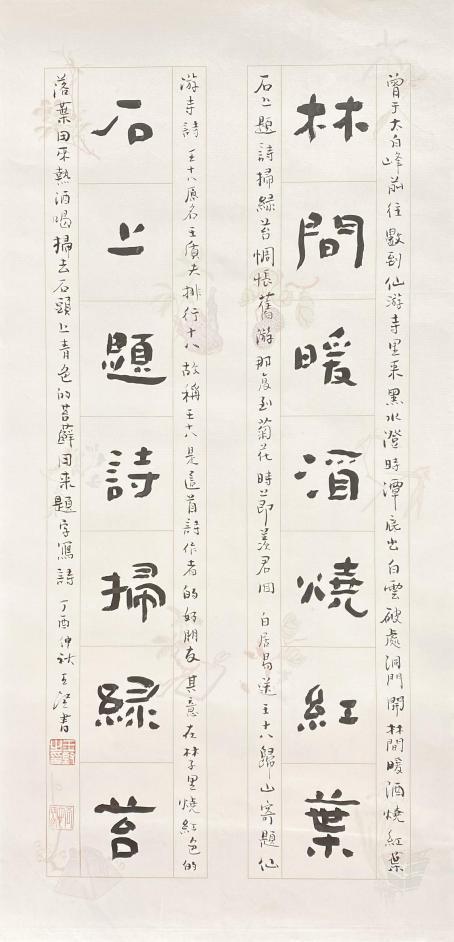 曾于太白峰前往數到仙游寺里來黑水澄時潭底出白雲破處洞門開林間暖酒燒紅葉
林間暖酒燒紅葉
石上題詩掃緑苔惆悵舊游那復到菊花時節羨君回 白居易送王十八歸山寄題仙
游寺詩 王十八原名王質夫排行十八故稱王十八是這首詩作者的好朋友其意在林子里燒紅色的
石上題詩掃緑苔
落葉用來熱酒喝掃去石頭上青色的苔蘚用來題字寫詩 丁酉仲秋王澄書